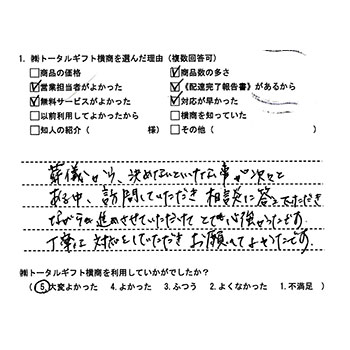 1. ㈱トータルギフト横商を選んだ理由（複数回答可）
□商品の価格 ☑商品数の多さ
☑営業担当者がよかった ☑《配達完了報告書》があるから
☑無料サービスがよかった ☑対応が早かった
□以前利用してよかったから □横商を知っていた
□知人の紹介（ 様） □その他（ ）
葬儀から、決めないといけない事が次々と
ある中、訪問していただき 相談に答えていただき
ながら 進めさせていただけて とても心強かったです。
丁寧に対応をしていただき お願いしてよかったです。
㈱トータルギフト横商を利用していかがでしたか？
（ 5.大変よかった 4.よかった 3.ふつう 2.よくなかった 1.不満足 ）